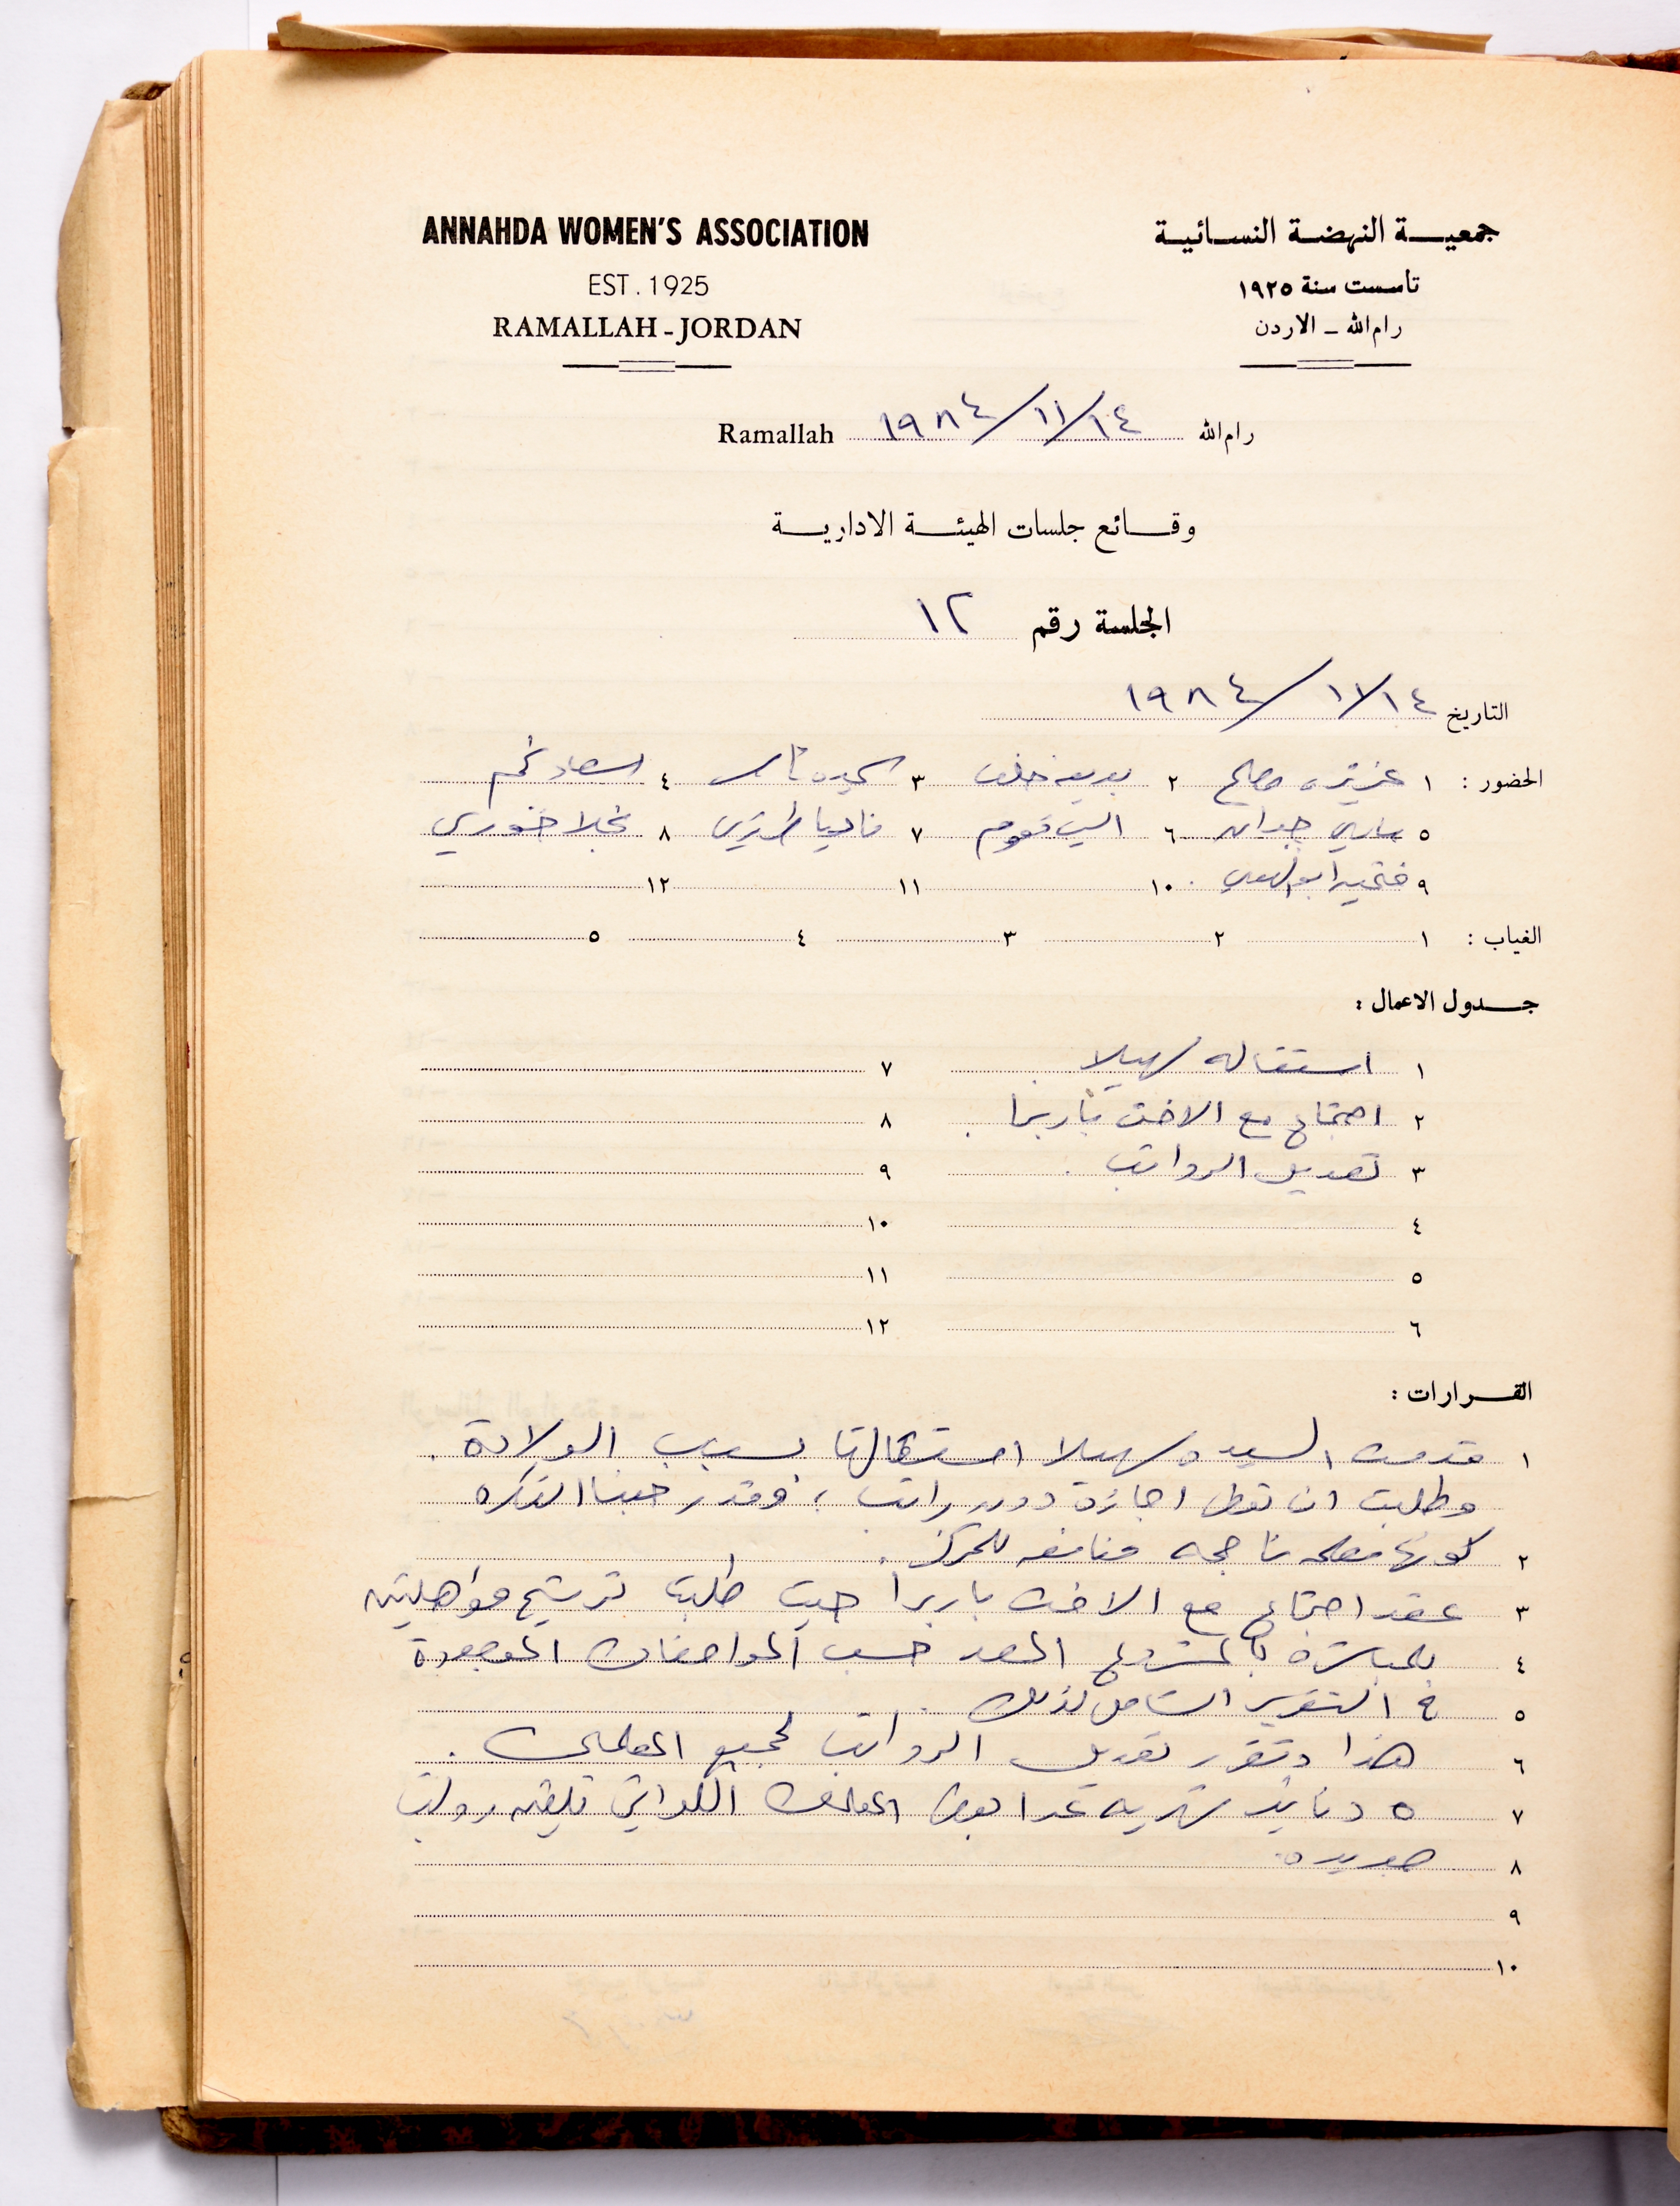 ANNAHDA WOMEN'S ASSOCIATION
EST. 1925
RAMALLAH - JORDAN
جمعيـــة النهضـــة النســائيــة
تاسست سنة ١٩٢٥
رام الله - الاردن
Ramallah ١٩٨٤/١١/١٤ رام الله
وقــائع جلسات الهيئــة الاداريــة
الجلسة رقم ١٢
التاريخ ١٩٨٤/١١/١٤
الحضور : ١ عزيزه مصلح ٢ بديعه خلف ٣ ٤ اسعاد نجم
٥ ماري جدالله ٦ اليس نعوم ٧ ناديا طرزي ٨ نجلا خوري
٩ فتحيه ابو ١٠ ١١ ١٢
الغياب : ١ ٢ ٣ ٤ ٥
جــدول الاعمال :
١ استقاله سهيلا . ٧
٢ اجتماع مع الاخت باربرا . ٨
٣ تعديل الرواتب . ٩
٤ ١٠
٥ ١١
٦ ١٢
القــرارات :
١ قدمت السيده سهيلا استقالتها بسبب الولادة .
وطلبت ان تعطى اجازة دون راتب ، وقد رحبنا الفكره
٢ كونها معلمه ناجحه ونافعه للمركز .
٣ عقد اجتماع مع الاخت باربرا حيث طلبت ترشيح مؤهلتين
٤ للمباشره بالمشروع المعد حسب المواصفات الموجودة
٥ في التقرير الشامل لذلك .
٦ هذا وتقرر تعديل الرواتب لجميع المعلمات .
٧ ٥ دنانير شهريه عدا بعض المعلمات اللواتي تلقين رواتب
٨ جديده .
٩
١٠